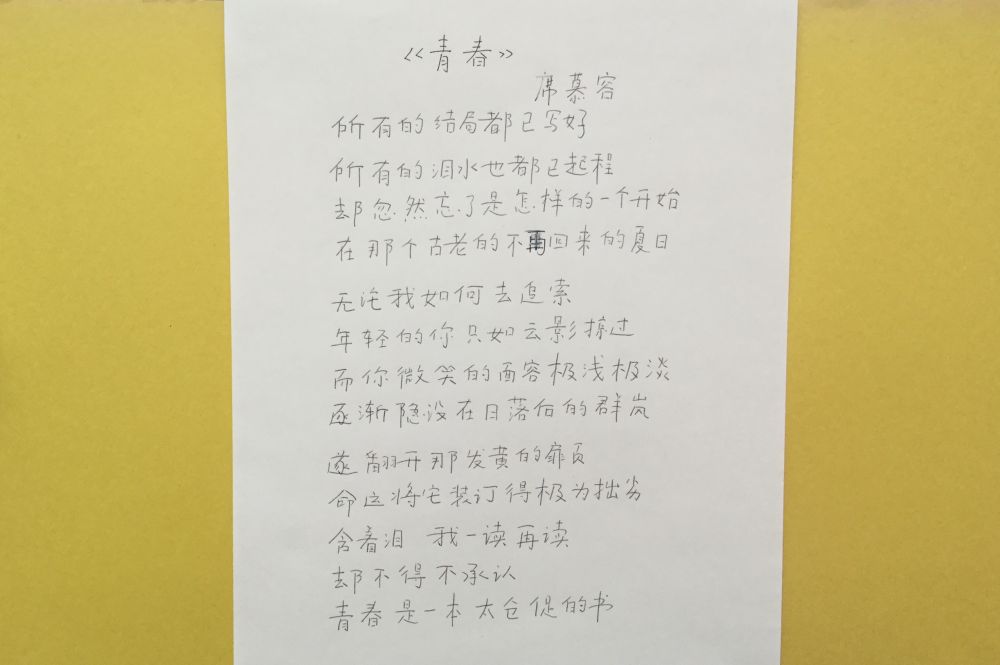 《青春》
席慕容
所有的结局都已写好
所有的泪水也都已起程
却忽然忘了是怎样的一个开始
在那个古老的不再回来的夏日
无论我如何去追索
年轻的你只如云影掠过
而你微笑的面容极浅极淡
逐渐隐没在日落后的群岚
遂翻开那发黄的扉页
命运将它装订得极为拙劣
含着泪 我一读再读
却不得不承认
青春是一本太仓促的书